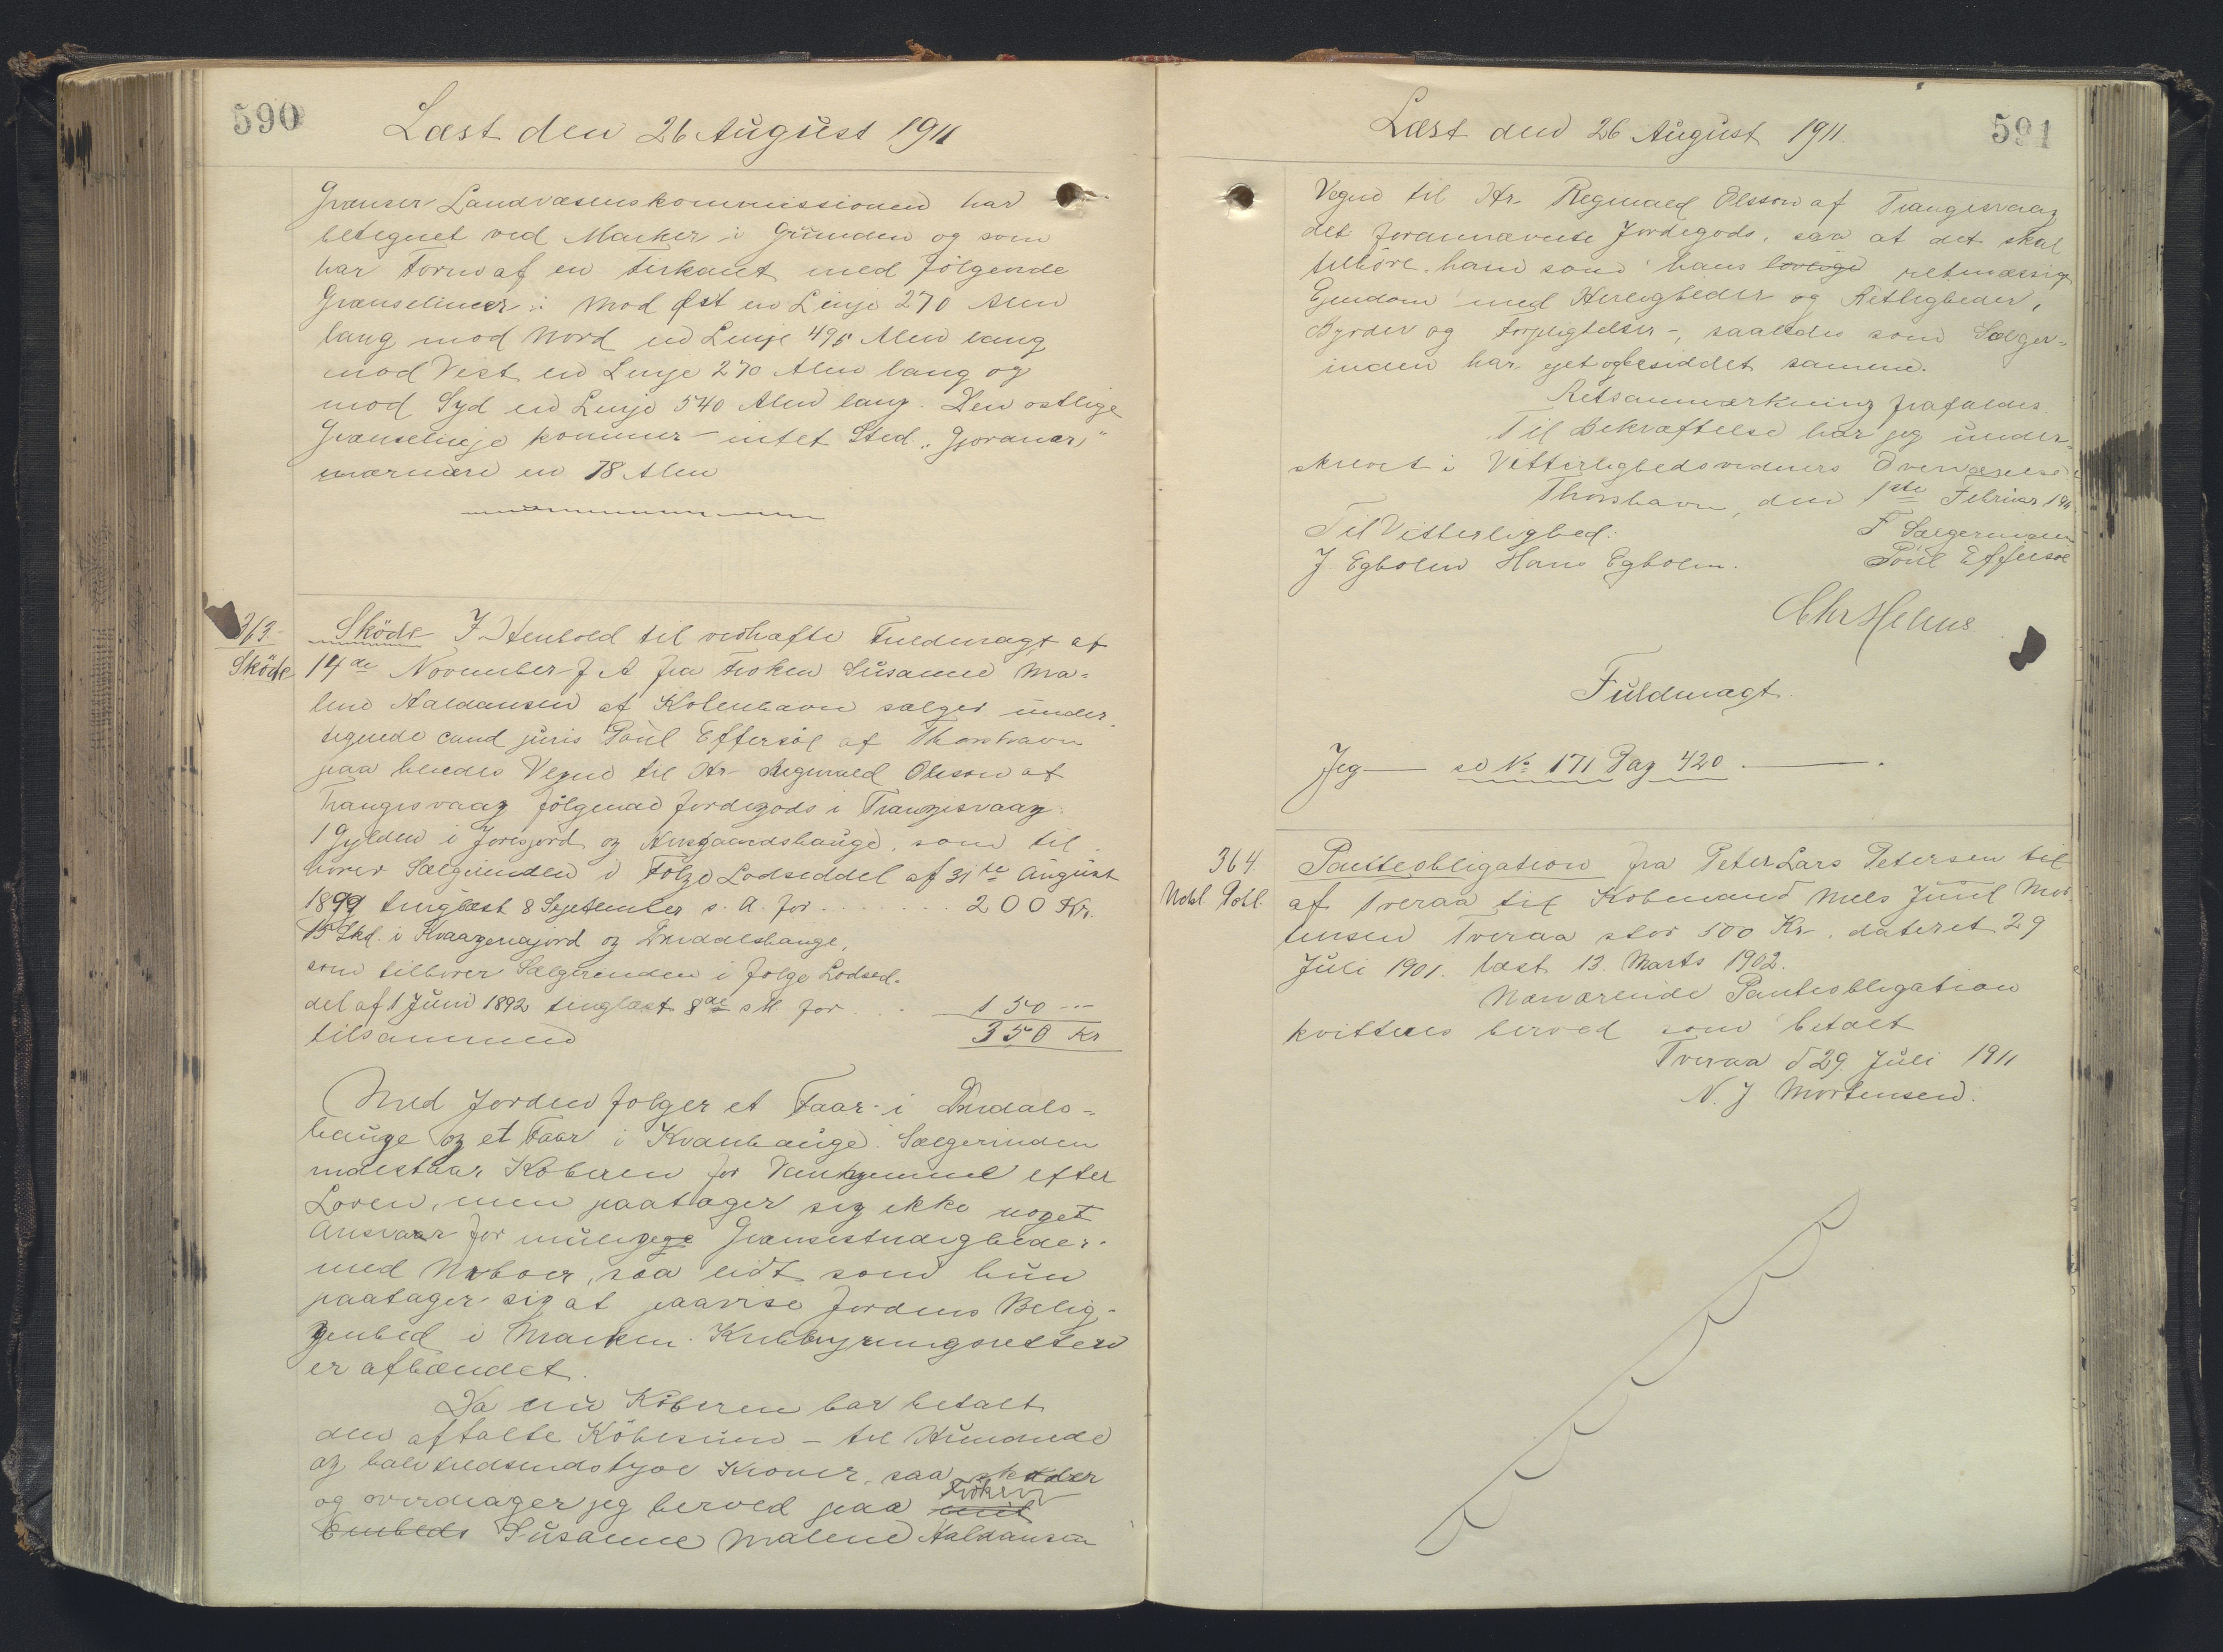 590
Læst den 26 August 1911
Grænser Landvæsenskommissionen har
betegnet ved Mærker i Grunden og som
har Form af en Firkant med følgende
Grænselinier: Mod Øst en Linje 270 Alen
lang mod Nord en Linje 495 Alen lang
mod Vest en Linje 270 Alen lang og
mod Syd en Linje 540 Alen lang. Den østlige
Grænselinje kommer intet Sted
nærmere en 78 Alen
363.
Sköde
Sköde I Henhold til vedhæfte Fuldmagt af
14de November f A fra Frøken Susanne Ma-
lene Haldansen af Kobenhavn sælger under
tegnede cand juris Poul Effersöe af Thorshavn
paa hendes Vegne til Hr Regmald Olsson af
Trangisvaag fölgende Jordegods i Trangisvaag.
1 Gylden i Joresjord og Husgaardshauge, som til
hører Sælgerinden i Følge Lodseddel af 31te August
1899 tinglæst 8 September s. A. for . . . . . . 200 Kr.
15 Skd. i Kvaagenajord og Dnidalshauge,
som tilhører Sælgerinden i følge Lodsed-
del af 1 Juni 1892 tinglæst 8de s M. for . . . 150 --
tilsammen 350 Kr
Med Jorden følger et Faar i Dnidals-
hauge og et Faar i Kvanhauge. Sælgerinden
indestaar Köberen for Vanhjemmel efter
Loven, men paatager sig ikke noget
Ansvar for mulige Grænsestridigheder
med Naboer, saa lidt som hun
paatager sig at paavise Jordens Belig-
genhed i Marken.
er afhændet.
Da nu Köberen har betalt
den aftalte Köbesum - tre Hundrede
og halvtredsindstyve Kroner, saa skøder
og overdrager jeg herved paa mit Frøken
Embeds Susanne Malene Haldansen
Læst den 26 August 1911.
591
Vegne til Hr. Regmald Olsson af Trangisvaag
det forannævnte Jordegods, saa at det skal
tilhöre ham som hans lovlige retmæssig
Ejendom med Herligheder og Rettigheder,
Byrder og Forpligtelser -, saaledes som Sælger-
inden har ejet og besiddet samme.
Retsanmærkning frafaldes.
Til Bekræftelse har jeg under-
skrevet i Vitterlighedsvidners Overværelse
Thorshavn, den 1ste Februar 1911
Til Vitterlighed: F Sælgerinden
J Egholm Hans Egholm. Poul Effersöe
Chr Helms
Fuldmagt
Jeg — se № 171 Pag 420 — .
364
Udsl Potl.
Panteobligation fra Peter Lars Petersen til
af Tveraa til Købmand Niels Juul Mor
tensen Tveraa stor 500 Kr. dateret 29
Juli 1901. læst 13. Marts 1902.
Nærværende Panteobligation
kvitteres herved som betalt
Tveraa d 29 Juli 1911
N. J Mortensen.